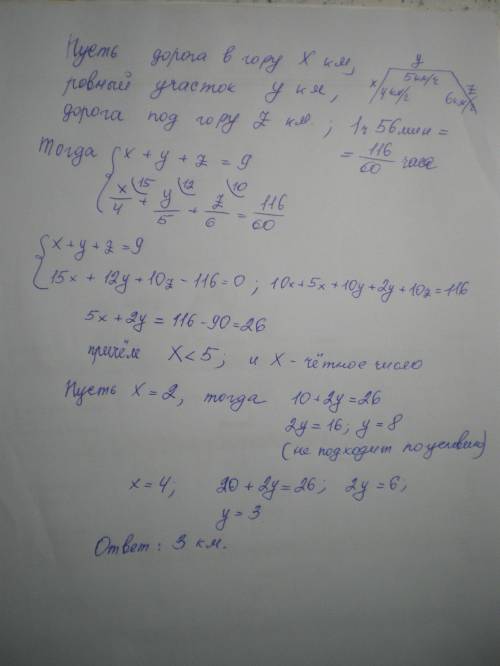 Пусть дорога в гору x км,
ровный участок y км,
дорога под гору z км; 1ч 56 мин =
= 116/60 часа
y
x 4 км/ч 5 км/ч 6 км/ч z
Тогда { x + y + z = 9
x/4 (15 + y/5 (12 + z/6 (10 = 116/60
{ x + y + z = 9
15x + 12y + 10z - 116 = 0; 10x + 5x + 10y + 2y + 10z = 116
5x + 2y = 116 - 90 = 26
причём x < 5; и x - чётное число
Пусть x = 2, тогда 10 + 2y = 26
2y = 16; y = 8
(не подходит по условию)
x = 4; 20 + 2y = 26; 2y = 6;
y = 3
Ответ: 3 км.